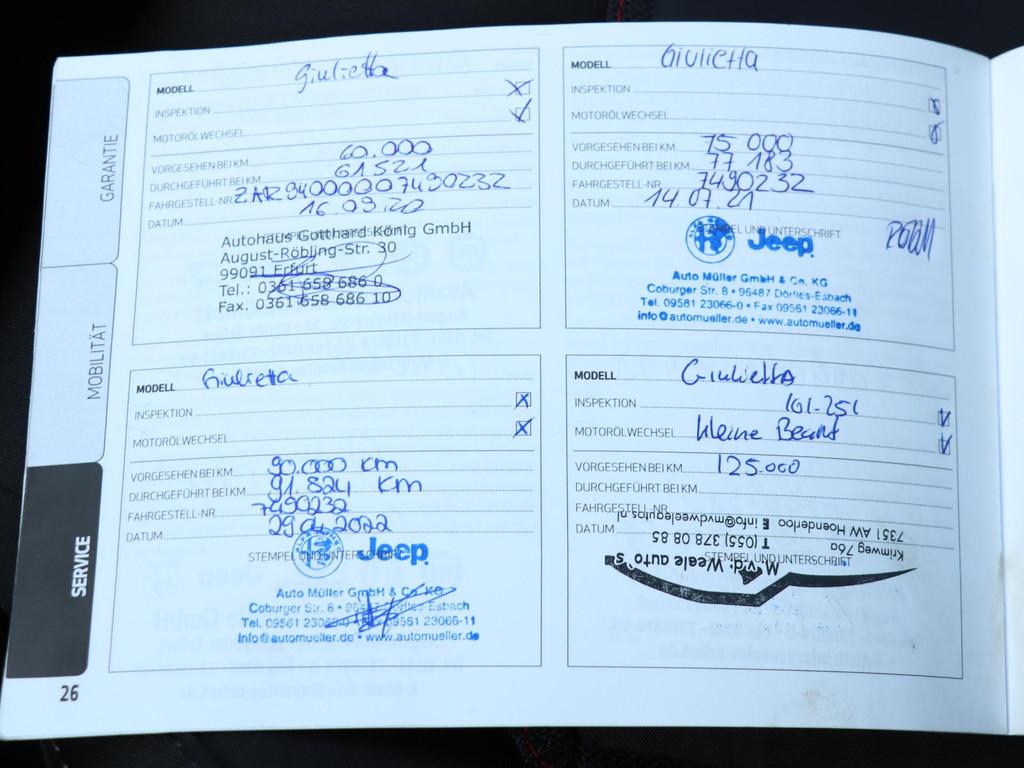 GARANTIE
MOBILITÄT
SERVICE
26
MODELL Giulietta
INSPEKTION
MOTORÖLWECHSEL
VORGESEHEN BEI KM 60.000
DURCHGEFÜHRT BEI KM 61521
FAHRGESTELL-NR ZAR94000007490232
DATUM 16.09.20
STEMPEL UND UNTERSCHRIFT
Autohaus Gotthard König GmbH
August-Röbling-Str. 30
99091 Erfurt
Tel.: 0361 658 686 0
Fax. 0361 658 686 10
MODELL Giulietta
INSPEKTION
MOTORÖLWECHSEL
VORGESEHEN BEI KM 75 000
DURCHGEFÜHRT BEI KM 77 183
FAHRGESTELL-NR 7490232
DATUM 14.07.21
STEMPEL UND UNTERSCHRIFT
Jeep
Auto Müller GmbH & Co. KG
Coburger Str. 8 • 96487 Dörfles-Esbach
Tel. 09561 23066-0 • Fax 09561 23066-11
info@automueller.de • www.automueller.de
MODELL Giulietta
INSPEKTION
MOTORÖLWECHSEL
VORGESEHEN BEI KM 90.000 KM
DURCHGEFÜHRT BEI KM 91.824 KM
FAHRGESTELL-NR 7490232
DATUM 29.04.2022
STEMPEL UND UNTERSCHRIFT
Jeep
Auto Müller GmbH & Co. KG
Coburger Str. 8 • 96487 Dörfles-Esbach
Tel. 09561 23066-0 • Fax 09561 23066-11
info@automueller.de • www.automueller.de
MODELL Giulietta
INSPEKTION 101-251
MOTORÖLWECHSEL kleine Beurt
VORGESEHEN BEI KM 125.000
DURCHGEFÜHRT BEI KM
FAHRGESTELL-NR
DATUM
STEMPEL UND UNTERSCHRIFT
M.v.d. Weale auto's
Krimweg 76a T (055) 378 08 85
7351 AW Hoenderloo E info@mvdwealeautos.nl